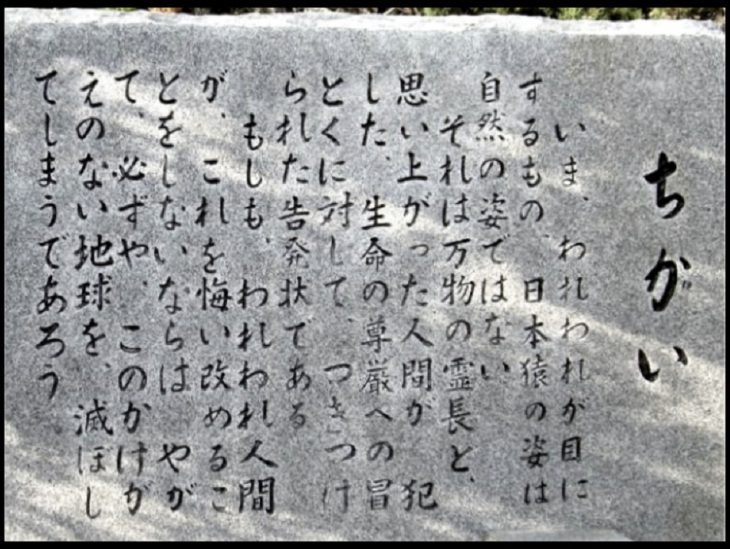 ちかい
いま、われわれが目に
するもの、日本猿の姿は
自然の姿ではない
それは万物の霊長と、
思い上がった人間が 犯
した、生命の尊厳への冒
とくに対して、つきつけ
られた告発状である
もしも、われわれ人間
が、これを悔い改めるこ
とをしないならは やが
て、必ずや、このかけが
えのない地球を、滅ぼし
てしまうであろう